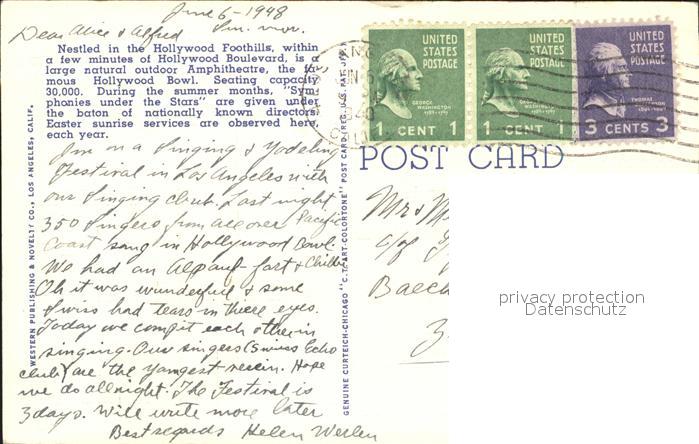 June 6 - 1948
Dear Alice & Alfred Sun. mor.
Nestled in the Hollywood Foothills, within
a few minutes of Hollywood Boulevard, is a
large natural outdoor Amphitheatre, the fa-
mous Hollywood Bowl. Seating capacity
30,000. During the summer months, "Sym-
phonies under the Stars" are given under
the baton of nationally known directors.
Easter sunrise services are observed here,
each year.
I'm on a Singing & Yodeling
Festival in Los Angeles with
our singing club. Last night
350 singers from all over Pacific
Coast sang in Hollywood Bowl.
We had an Alpauf-fart & Chilbi
Oh it was wunderful & some
Swiss had tears in there eyes.
Today we compit each other in
singing. Our singers (Swiss Echo
club) are the yangest Hope
we do allright. The Festival is
3 days. Will write more later
Best regards Helen Werlen
WESTERN PUBLISHING & NOVELTY CO., LOS ANGELES, CALIF.
GENUINE CURTEICH-CHICAGO "C.T. ART-COLORTONE" POST CARD (REG. U.S. PAT. OFF.)
UNITED
STATES
POSTAGE
GEORGE
WASHINGTON
1 CENT 1
UNITED
STATES
POSTAGE
GEORGE
WASHINGTON
1 CENT 1
UNITED
STATES
POSTAGE
THOMAS
3 CENTS 3
POST CARD
Mr & M
c/o
Baech
3
privacy protection
Datenschutz